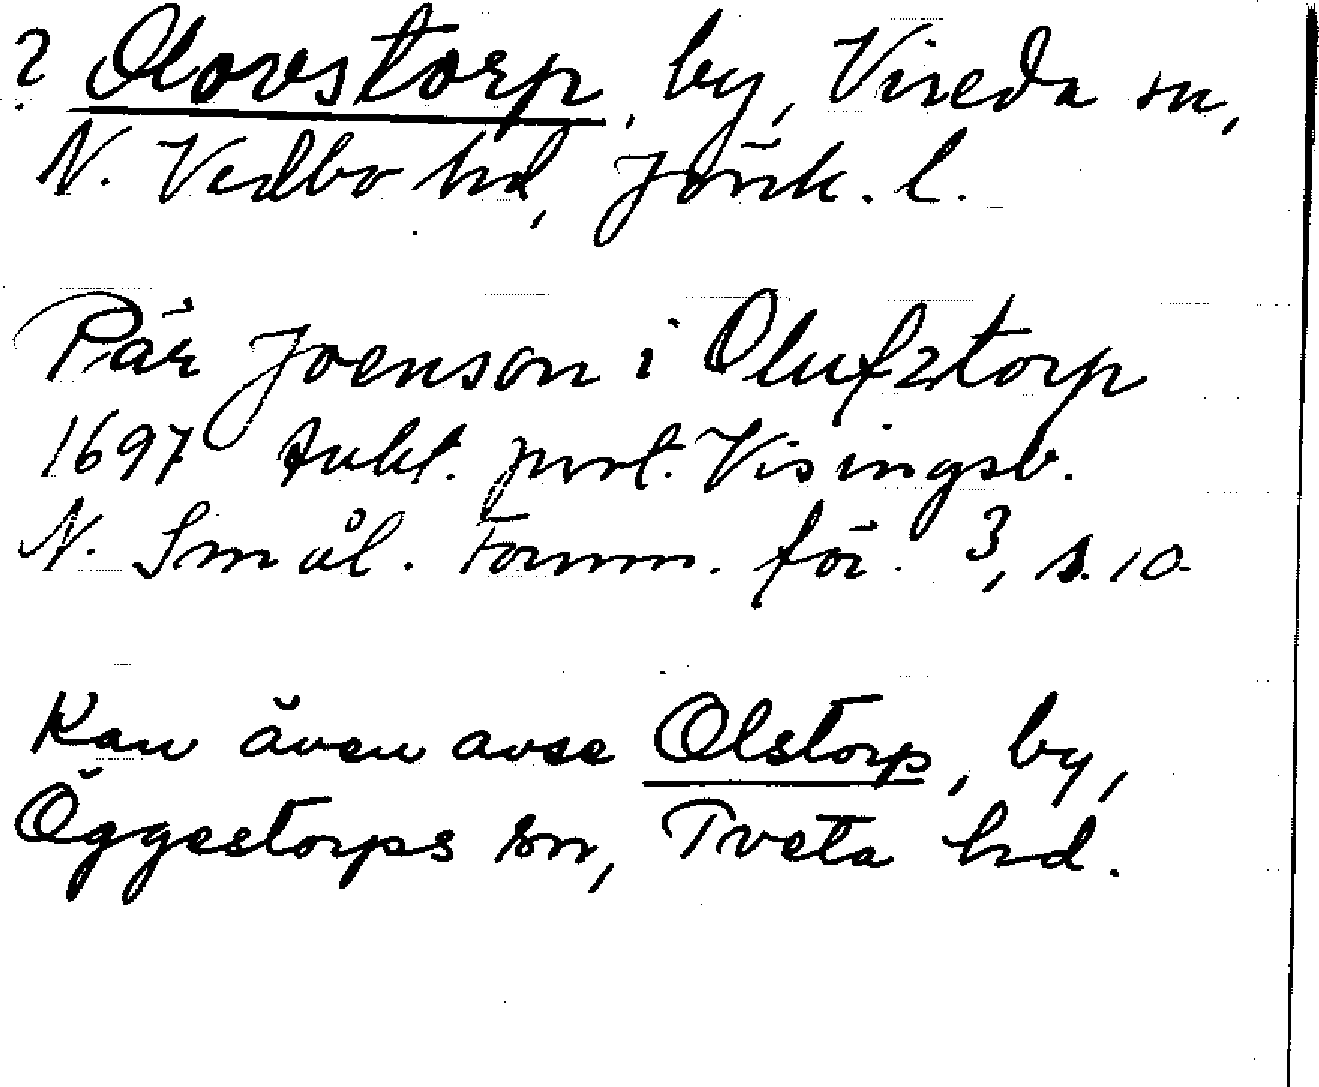 ? Olovstorp, by, Vireda sn,
N. Vedbo hd, Jönk. l.
Pär Joenson i Olufztorp
1697 Aukt. prot. Visingsb.
N. Smål. Fornm. för. 3, s. 10
Kan även avse Olstorp, by,
Öggestorps sn, Tveta hd.